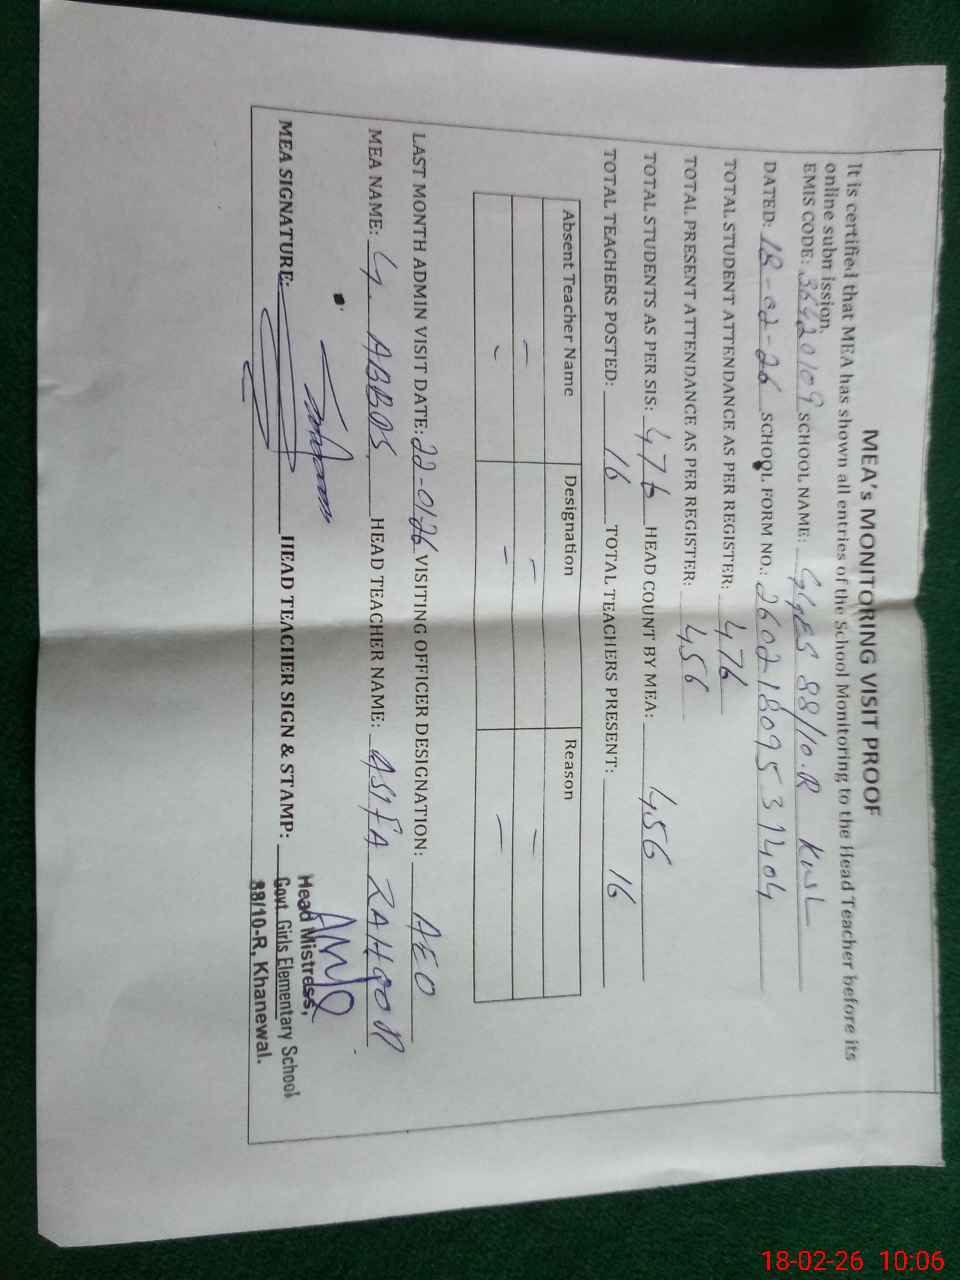 MEA's MONITORING VISIT PROOF
It is certified that MEA has shown all entries of the School Monitoring to the Head Teacher before its
online subn ission.
EMIS CODE: 36420109 SCHOOL NAME: GGES 88/10.R KWL
DATED: 18-02-26 SCHOOL FORM NO.: 26021809531404
TOTAL STUDENT ATTENDANCE AS PER REGISTER: 476
TOTAL PRESENT ATTENDANCE AS PER REGISTER: 456
TOTAL STUDENTS AS PER SIS: 476 HEAD COUNT BY MEA: 456
TOTAL TEACHERS POSTED: 16 TOTAL TEACHERS PRESENT: 16
Absent Teacher Name Designation Reason
— — —
— — —
LAST MONTH ADMIN VISIT DATE: 22-01-26 VISITING OFFICER DESIGNATION: AEO
MEA NAME: G. ABBAS. HEAD TEACHER NAME: ASIFA ZAHOOR
MEA SIGNATURE: HEAD TEACHER SIGN & STAMP:
Head Mistress,
Govt. Girls Elementary School
88/10-R, Khanewal.
18-02-26 10:06